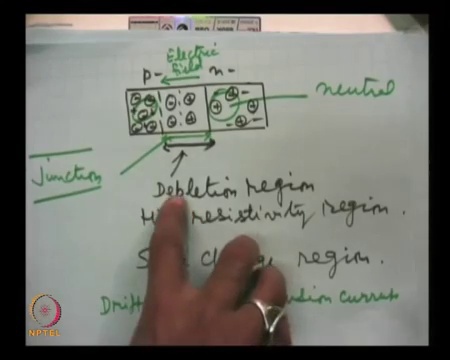 Electric
Field
p- n-
neutral
Junction
Depletion region
resistivity region.
region.
Drift
NPTEL